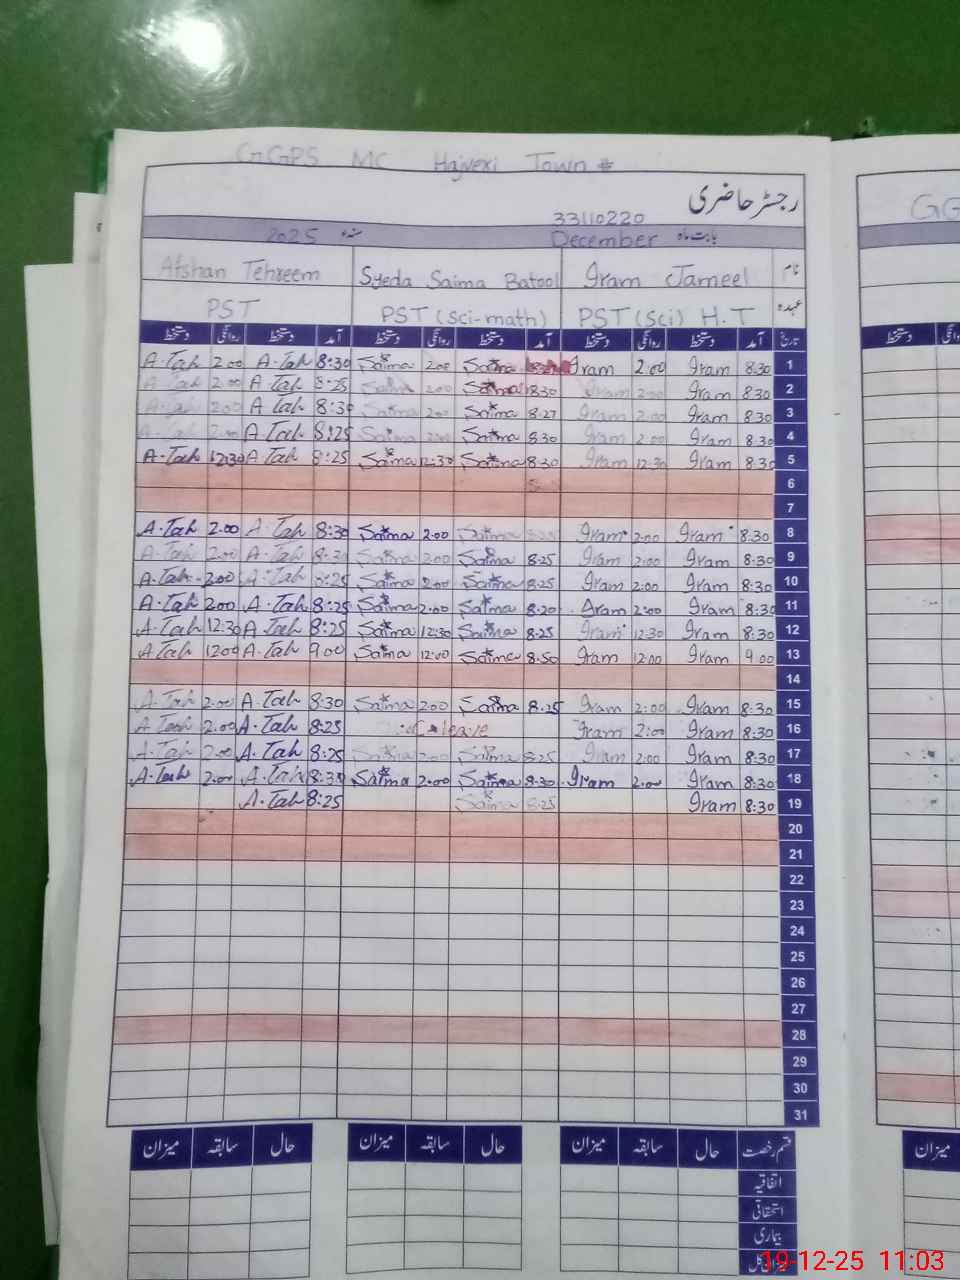 GGPS MC Hajveri Town #
رجسٹر حاضری
33110220
بابت ماہ December سنہ 2025
نام Iram Jameel Syeda Saima Batool Afshan Tehreem
عہدہ PST (Sci) H.T PST (Sci-math) PST
تاریخ آمد دستخط روانگی دستخط آمد دستخط روانگی دستخط آمد دستخط روانگی دستخط
1 8:30 Iram 2:00 Iram Saima 2:00 Saima 8:30 A.Tah 2:00 A.Tah
2 8:30 Iram 2:00 Iram 8:30 Saima 2:00 Saima 8:25 A.Tah 2:00 A.Tah
3 8:30 Iram 2:00 Iram 8:27 Saima 2:00 Saima 8:30 A.Tah 2:00 A.Tah
4 8:30 Iram 2:00 Iram 8:30 Saima 2:00 Saima 8:25 A.Tah 2:00 A.Tah
5 8:30 Iram 12:30 Iram 8:30 Saima 12:30 Saima 8:25 A.Tah 12:30 A.Tah
6
7
8 8:30 Iram 2:00 Iram Saima 2:00 Saima 8:30 A.Tah 2:00 A.Tah
9 8:30 Iram 2:00 Iram 8:25 Saima 2:00 Saima A.Tah 2:00 A.Tah
10 8:30 Iram 2:00 Iram 8:25 Saima 2:00 Saima 8:25 A.Tah 2:00 A.Tah
11 8:30 Iram 2:00 Iram 8:20 Saima 2:00 Saima 8:25 A.Tah 2:00 A.Tah
12 8:30 Iram 12:30 Iram 8:25 Saima 12:30 Saima 8:25 A.Tah 12:30 A.Tah
13 9:00 Iram 12:00 Iram 8:50 Saima 12:00 Saima 9:00 A.Tah 12:00 A.Tah
14
15 8:30 Iram 2:00 Iram 8:25 Saima 2:00 Saima 8:30 A.Tah 2:00 A.Tah
16 8:30 Iram 2:00 Iram leave 8:25 A.Tah 2:00 A.Tah
17 8:30 Iram 2:00 Iram 8:25 Saima 2:00 Saima 8:25 A.Tah 2:00 A.Tah
18 8:30 Iram 2:00 Iram 8:30 Saima 2:00 Saima 8:30 A.Tah 2:00 A.Tah
19 8:30 Iram 8:25 Saima 8:25 A.Tah
20
21
22
23
24
25
26
27
28
29
30
31
قسم رخصت حال سابقہ میزان حال سابقہ میزان حال سابقہ میزان
اتفاقیہ
استحقاقی
بیماری
GG
دستخط
میزان
19-12-25 11:03